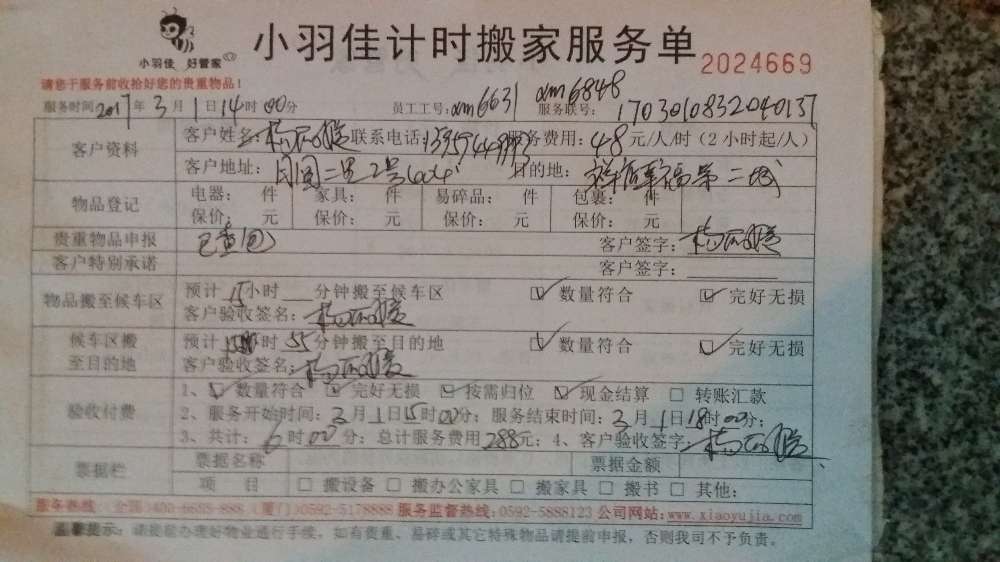 小羽佳 好管家
小羽佳计时搬家服务单 2024669
请您于服务前收拾好您的贵重物品！
服务时间2017年3月1日14时00分 员工工号:xm6631 xm6848 服务联号: 1703010832040137
客户资料 客户姓名: 联系电话: 服务费用:48元/人/时（2小时起/人）
客户地址: 2号 目的地: 第二城
物品登记 电器: 件 家具: 件 易碎品: 件 包裹: 件
保价: 元 保价: 元 保价: 元 保价: 元
贵重物品申报 客户签字:
客户特别承诺 客户签字:
物品搬至候车区 预计 小时 分钟搬至候车区 ☑数量符合 ☑完好无损
客户验收签名:
候车区搬至目的地 预计 时55分钟搬至目的地 ☑数量符合 ☑完好无损
客户验收签名:
验收付费 1、☑数量符合 ☑完好无损 ☑按需归位 ☑现金结算 □转账汇款
2、服务开始时间:3月1日15时00分; 服务结束时间:3月1日18时00分;
3、共计: 6时00分; 总计服务费用288元; 4、客户验收签字:
票据栏 票据名称 票据金额
项 目 □搬设备 □搬办公家具 □搬家具 □搬书 □其他:
服务热线: 全国:400-6655-888 (厦门)0592-5178888 服务监督热线:0592-5888123 公司网站:www.xiaoyujia.com
温馨提示: 请提前办理好物业通行手续，如有贵重、易碎或其它特殊物品请提前申报，否则我司不予负责。